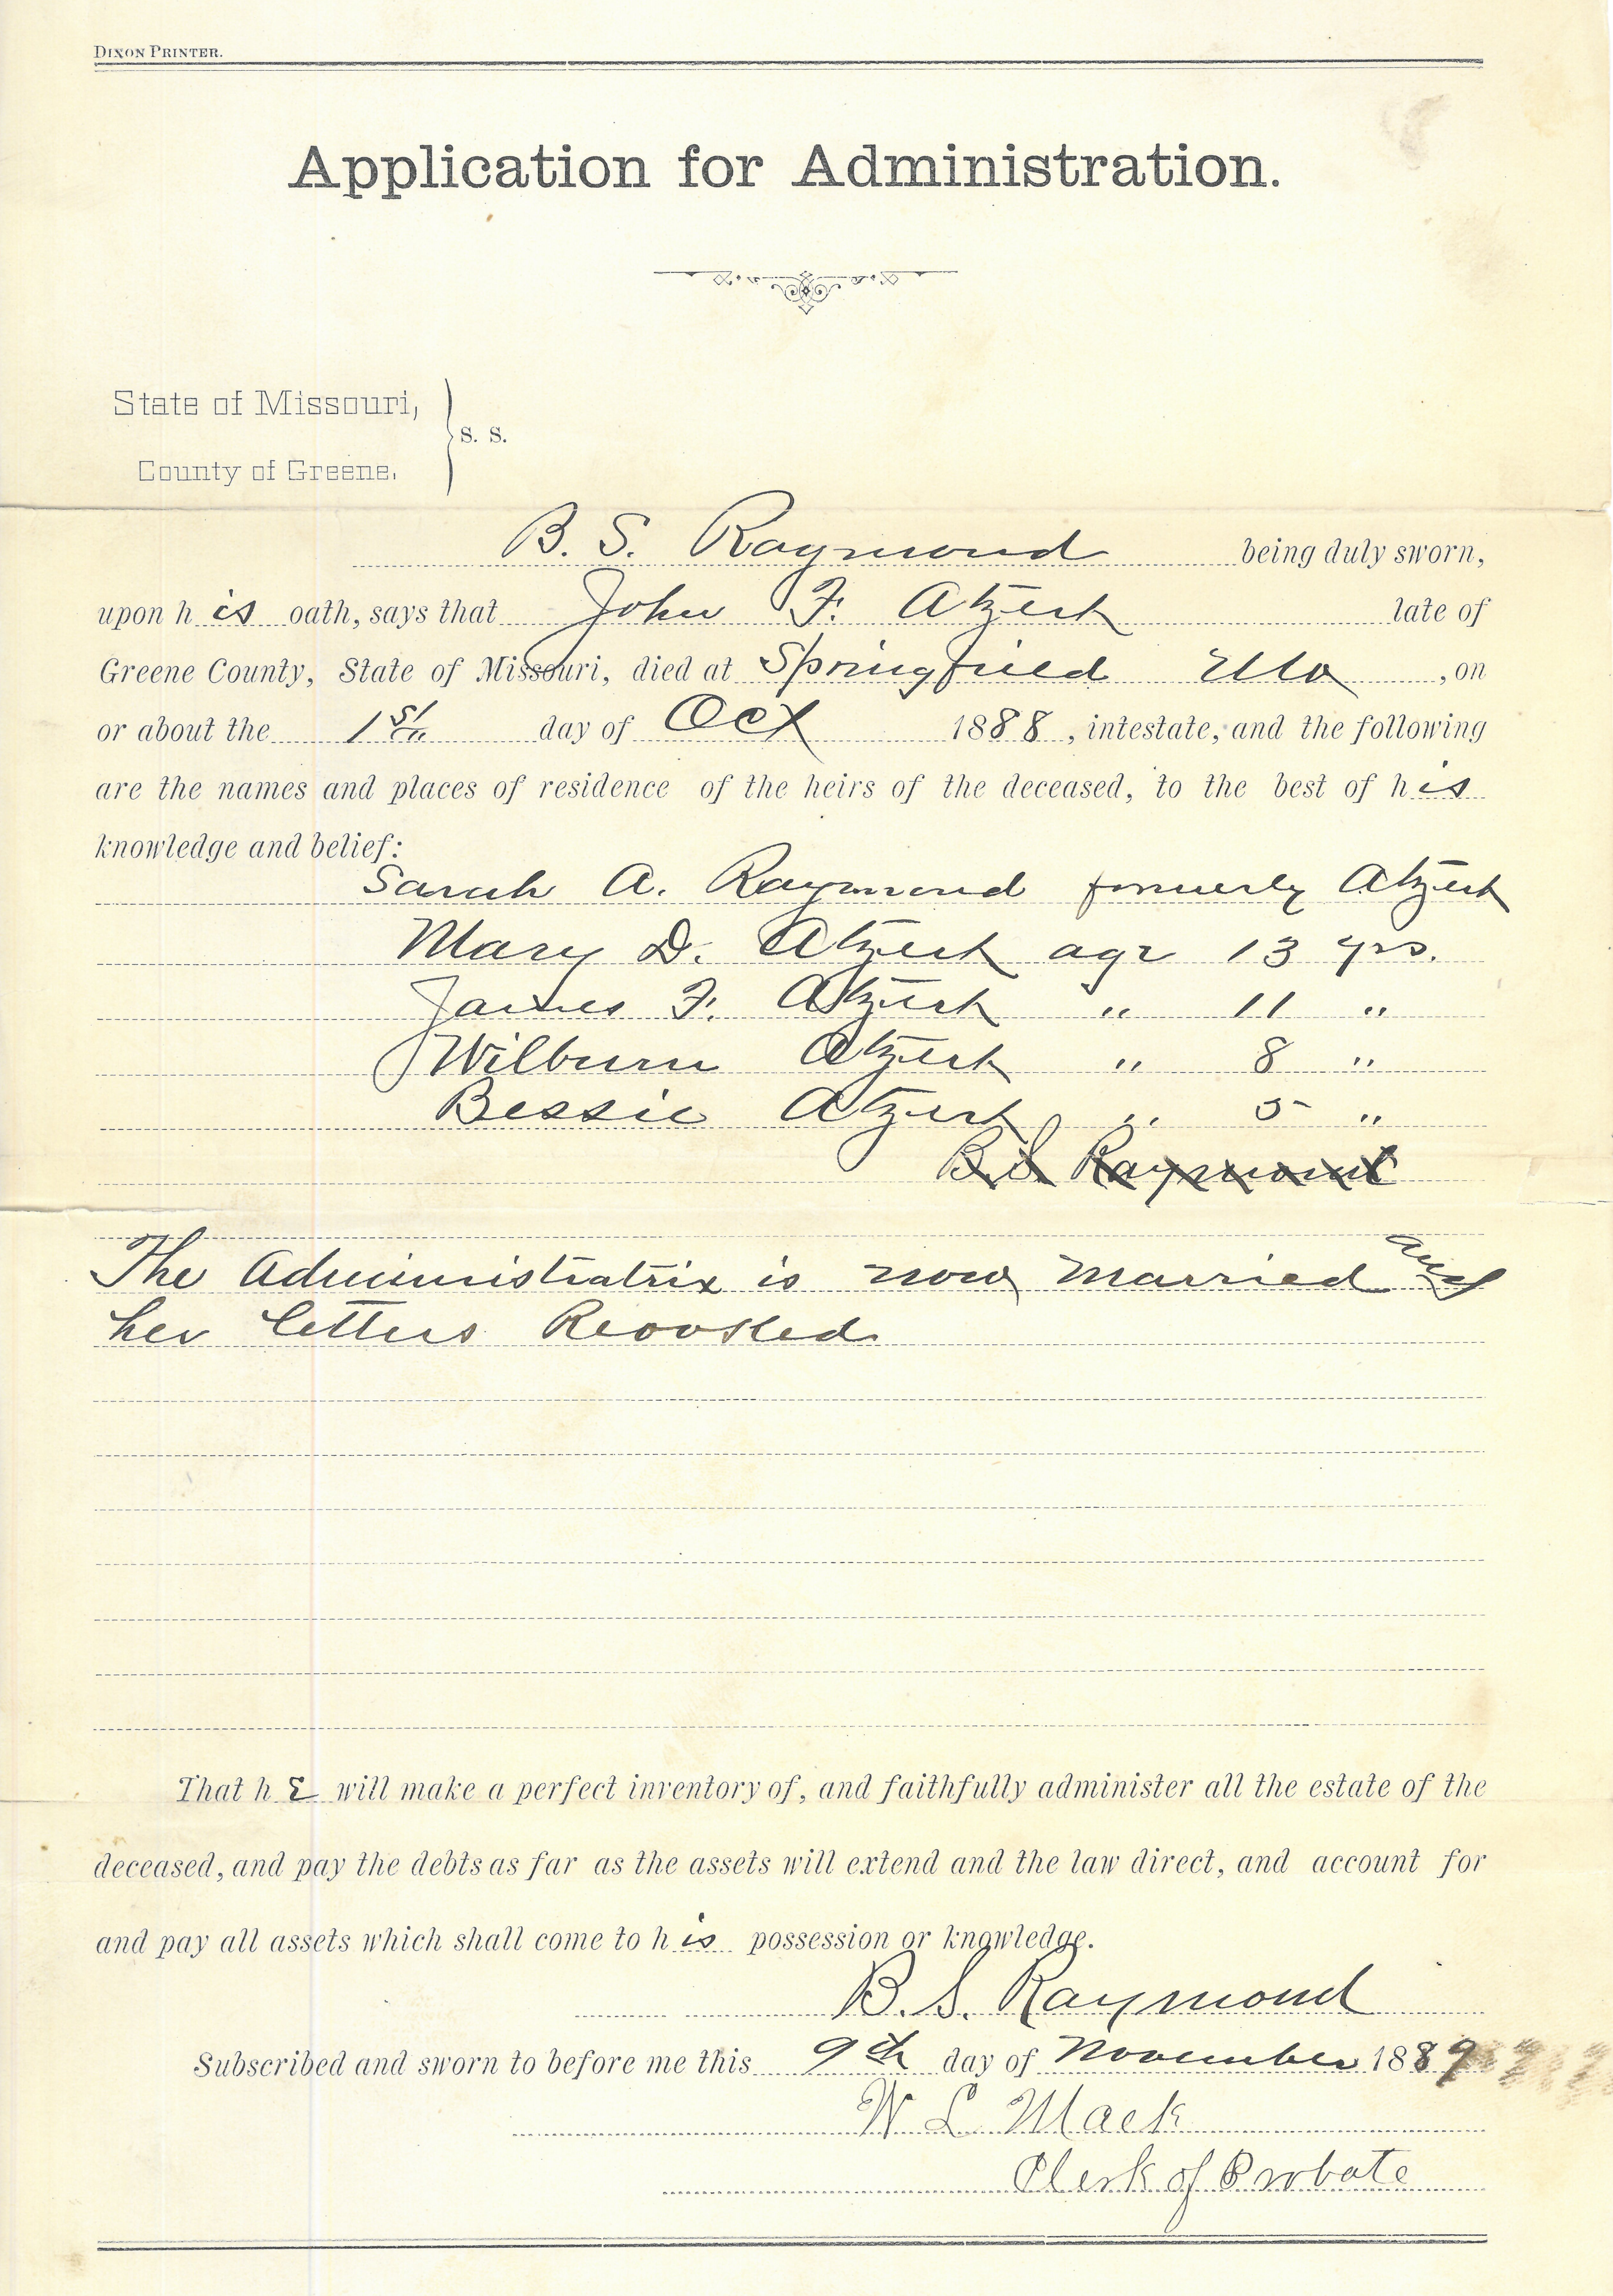 DIXON PRINTER.
Application for Administration.
State of Missouri,
S. S.
County of Greene.
B. S. Raymond being duly sworn,
upon his oath, says that John F. Atzert late of
Greene County, State of Missouri, died at Springfield Mo, on
or about the 1st day of Oct 1888, intestate, and the following
are the names and places of residence of the heirs of the deceased, to the best of his
knowledge and belief:
Sarah A. Raymond formerly Atzert
Mary D. Atzert age 13 yrs.
James F. Atzert " 11 "
Wilburn Atzert " 8 "
Bessie Atzert " 5 "
B. S. Raymond
The Administratrix is now married and
her letters Revoked
That he will make a perfect inventory of, and faithfully administer all the estate of the
deceased, and pay the debts as far as the assets will extend and the law direct, and account for
and pay all assets which shall come to his possession or knowledge.
B. S. Raymond
Subscribed and sworn to before me this 9th day of November 1889
W L Mack
Clerk of Probate